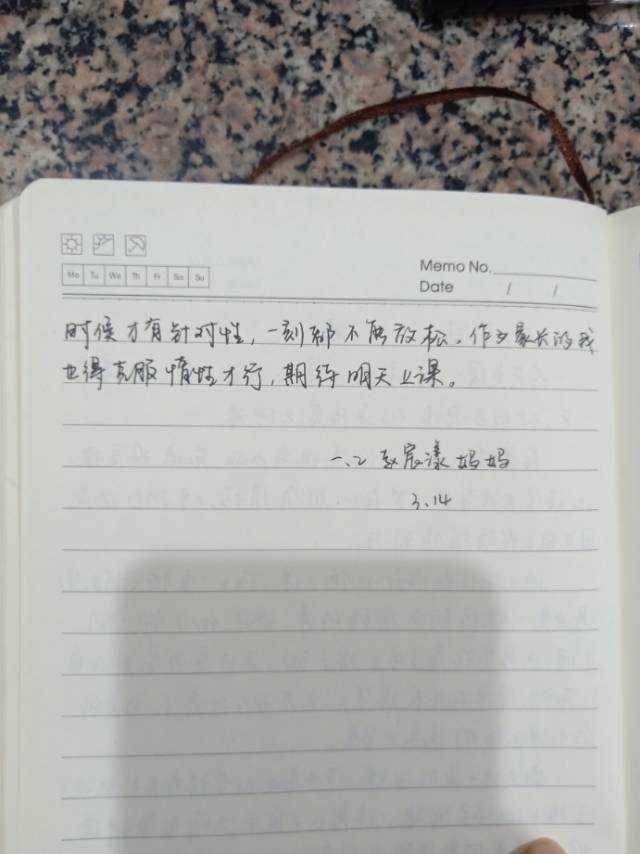 Mo Tu We Th Fr Sa Su
Memo No.
Date / /
时候才有针对性，一刻都不能放松。作为家长的我
也得克服惰性才行，期待明天上课。
一.2 赵宸漾妈妈
3.14